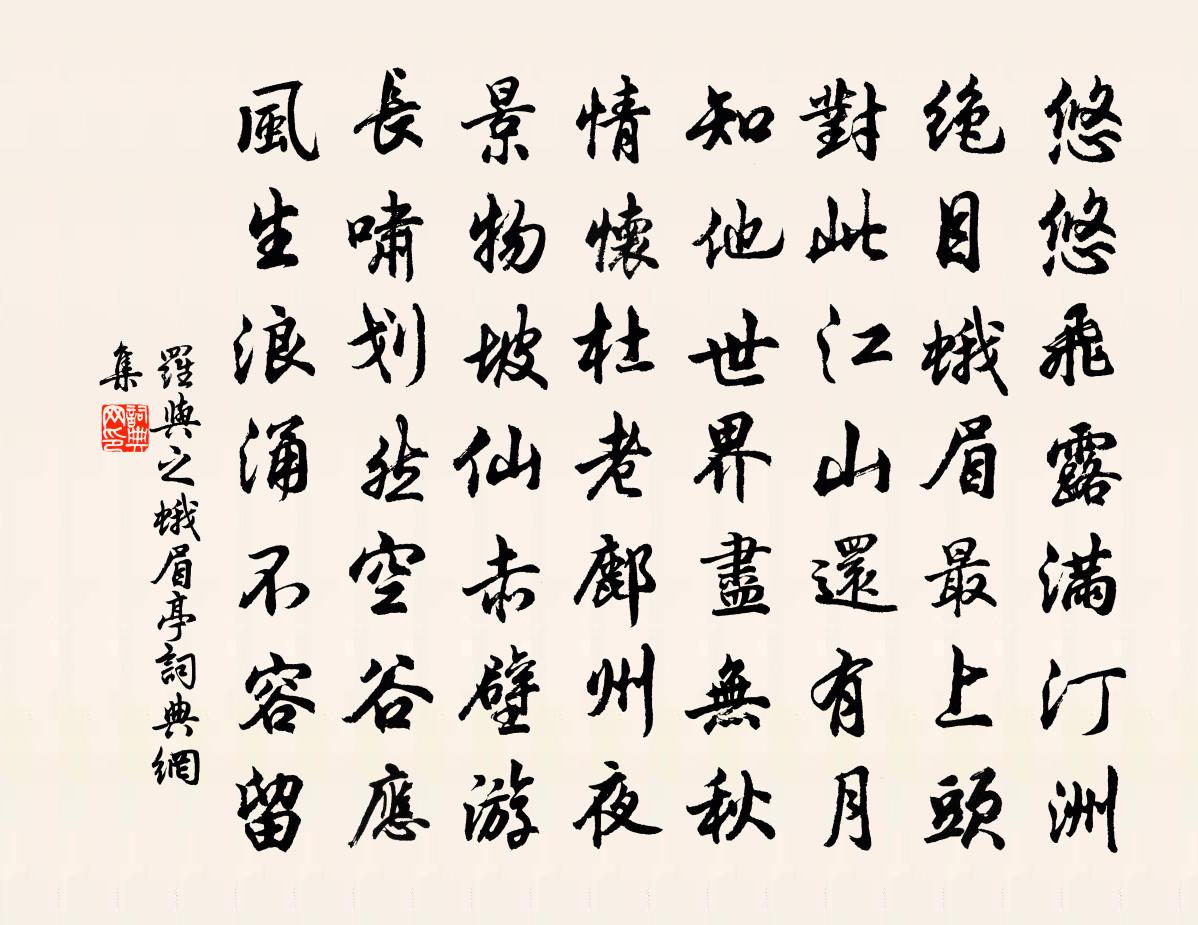 悠悠飛露滿汀洲
绝目蛾眉最上頭
對此江山還有月
知他世界盡無秋
情懷杜老鄜州夜
景物坡仙赤壁游
長嘯划然空谷應
風生浪涌不容留
羅與之蛾眉亭詞典網
集
詞典
网印